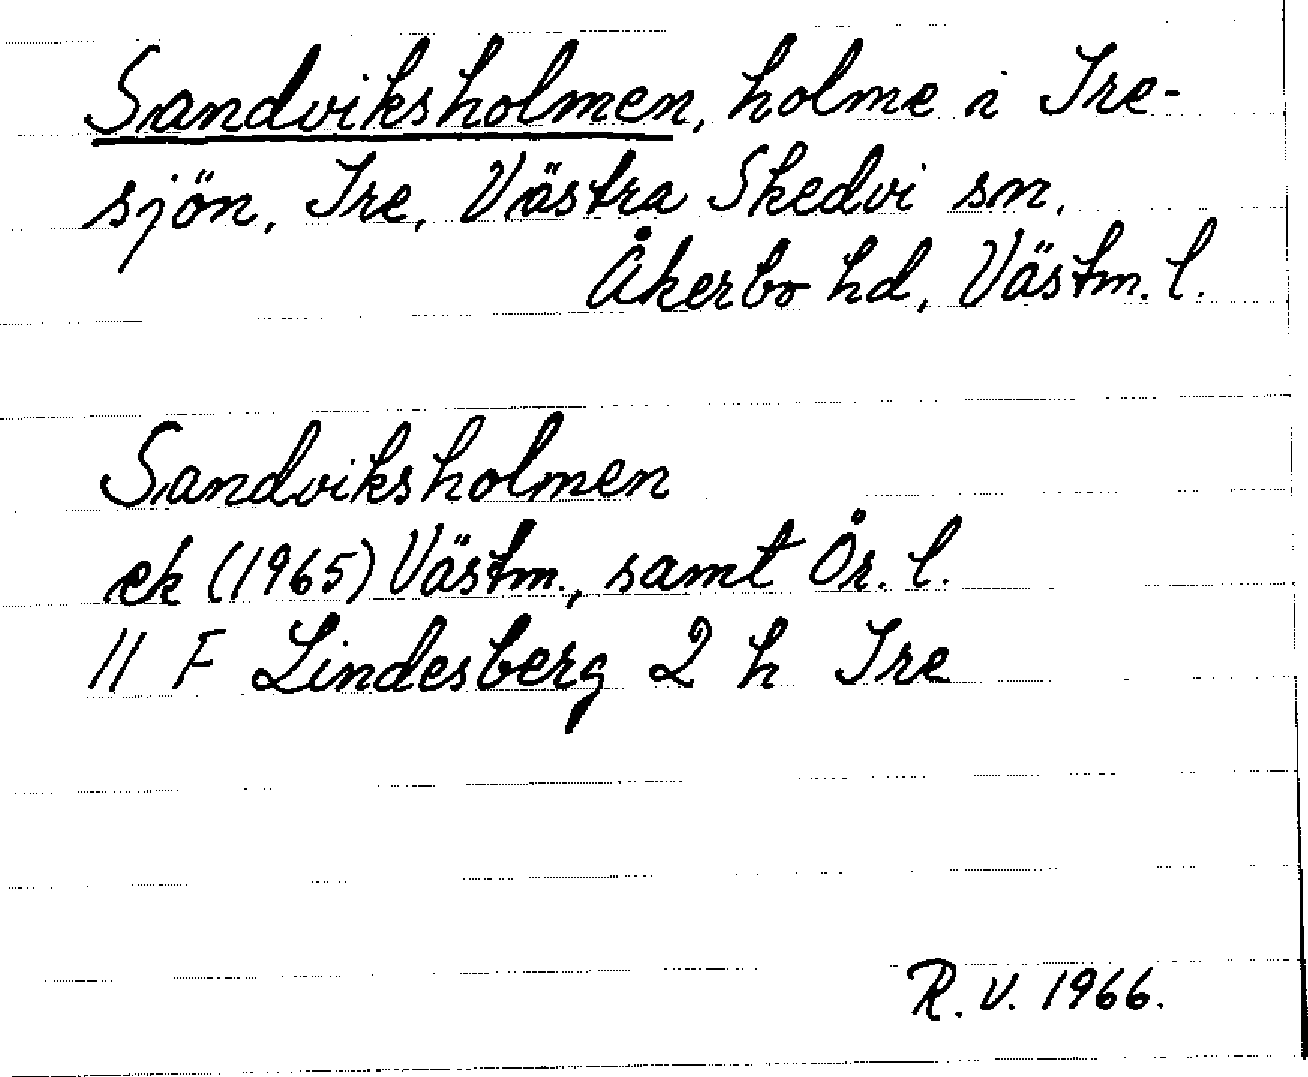 Sandviksholmen, holme i Tre-
sjön, Tre, Västra Skedvi sn,
Åkerbo hd, Västm. l.
Sandviksholmen
ek (1965) Västm., samt Ör. l.
11 F Lindesberg 2 h Tre
R. V. 1966.